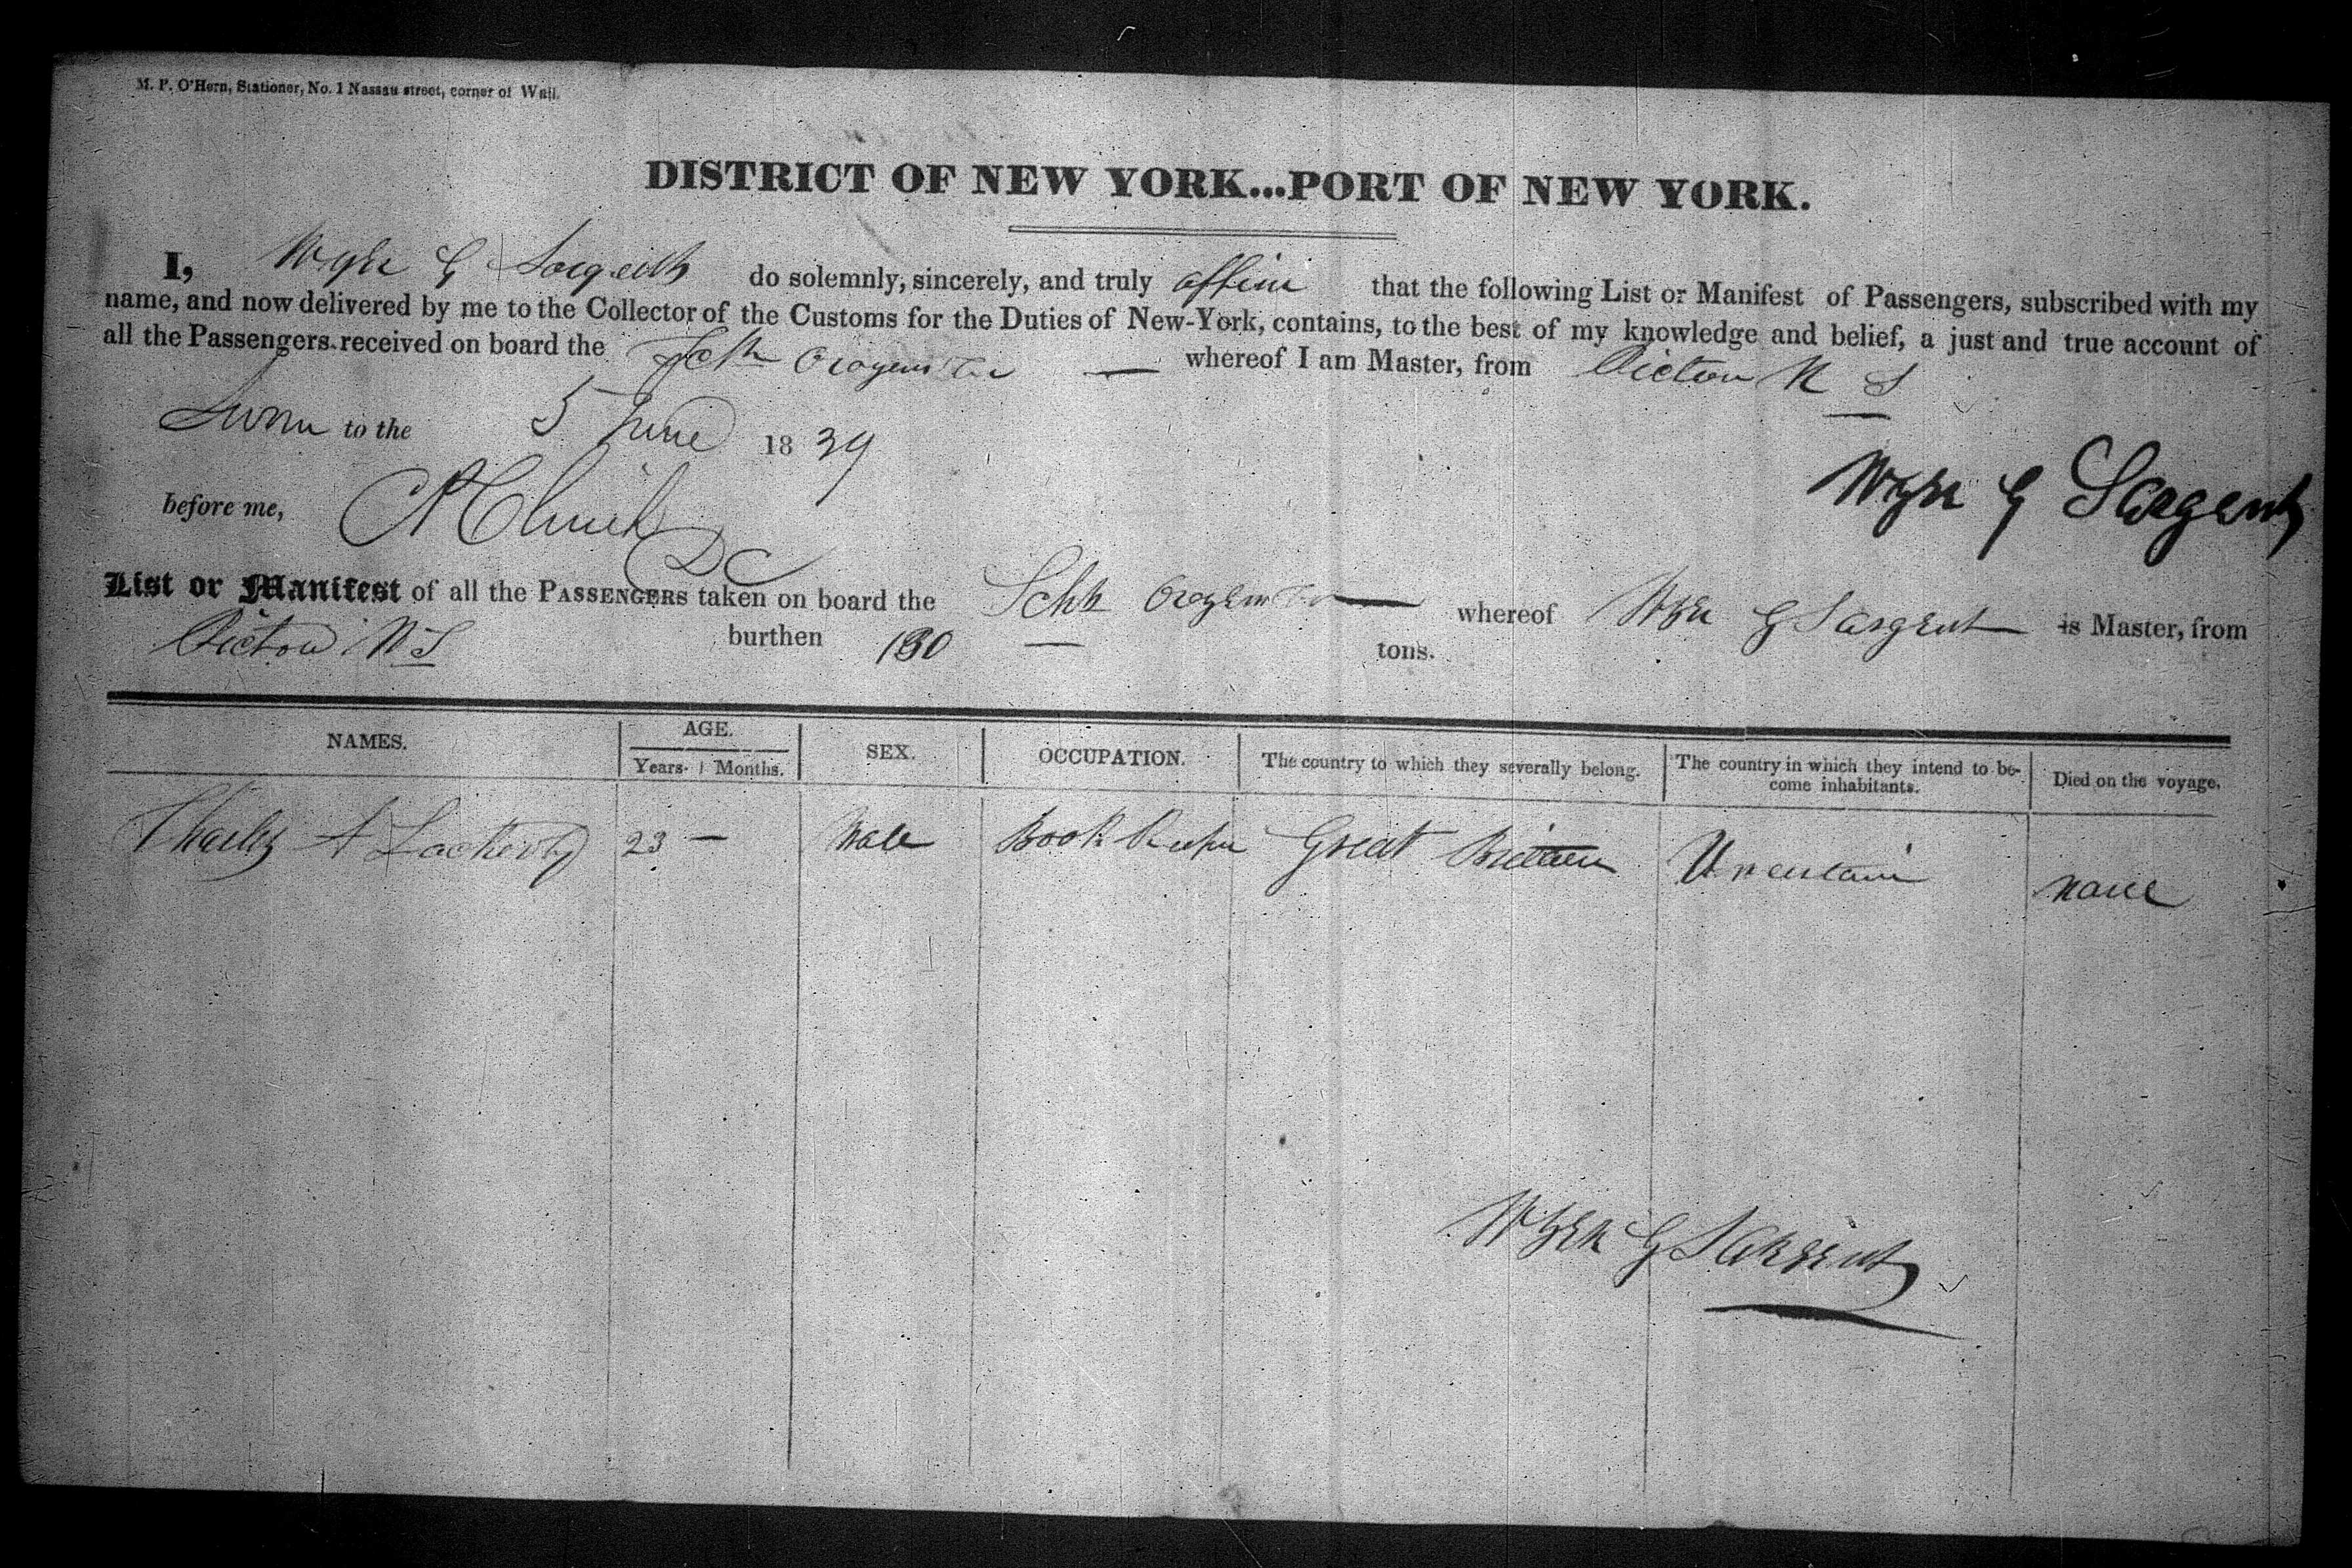 M. P. O'Hern, Stationer, No. 1 Nassau street, corner of Wall.
DISTRICT OF NEW YORK...PORT OF NEW YORK.
I, G Sargent do solemnly, sincerely, and truly affirm that the following List or Manifest of Passengers, subscribed with my
name, and now delivered by me to the Collector of the Customs for the Duties of New-York, contains, to the best of my knowledge and belief, a just and true account of
all the Passengers received on board the Schr whereof I am Master, from Pictou N S
Sworn to the 5 June 1839
G Sargent
before me,
List or Manifest of all the PASSENGERS taken on board the Schr whereof G Sargent is Master, from
Pictou NS burthen 130 tons.
NAMES. AGE. SEX. OCCUPATION. The country to which they severally belong. The country in which they intend to be-come inhabitants. Died on the voyage.
Years. Months.
Charles A 23 — Male Book Keeper Great Britain Uncertain none
G Sargent